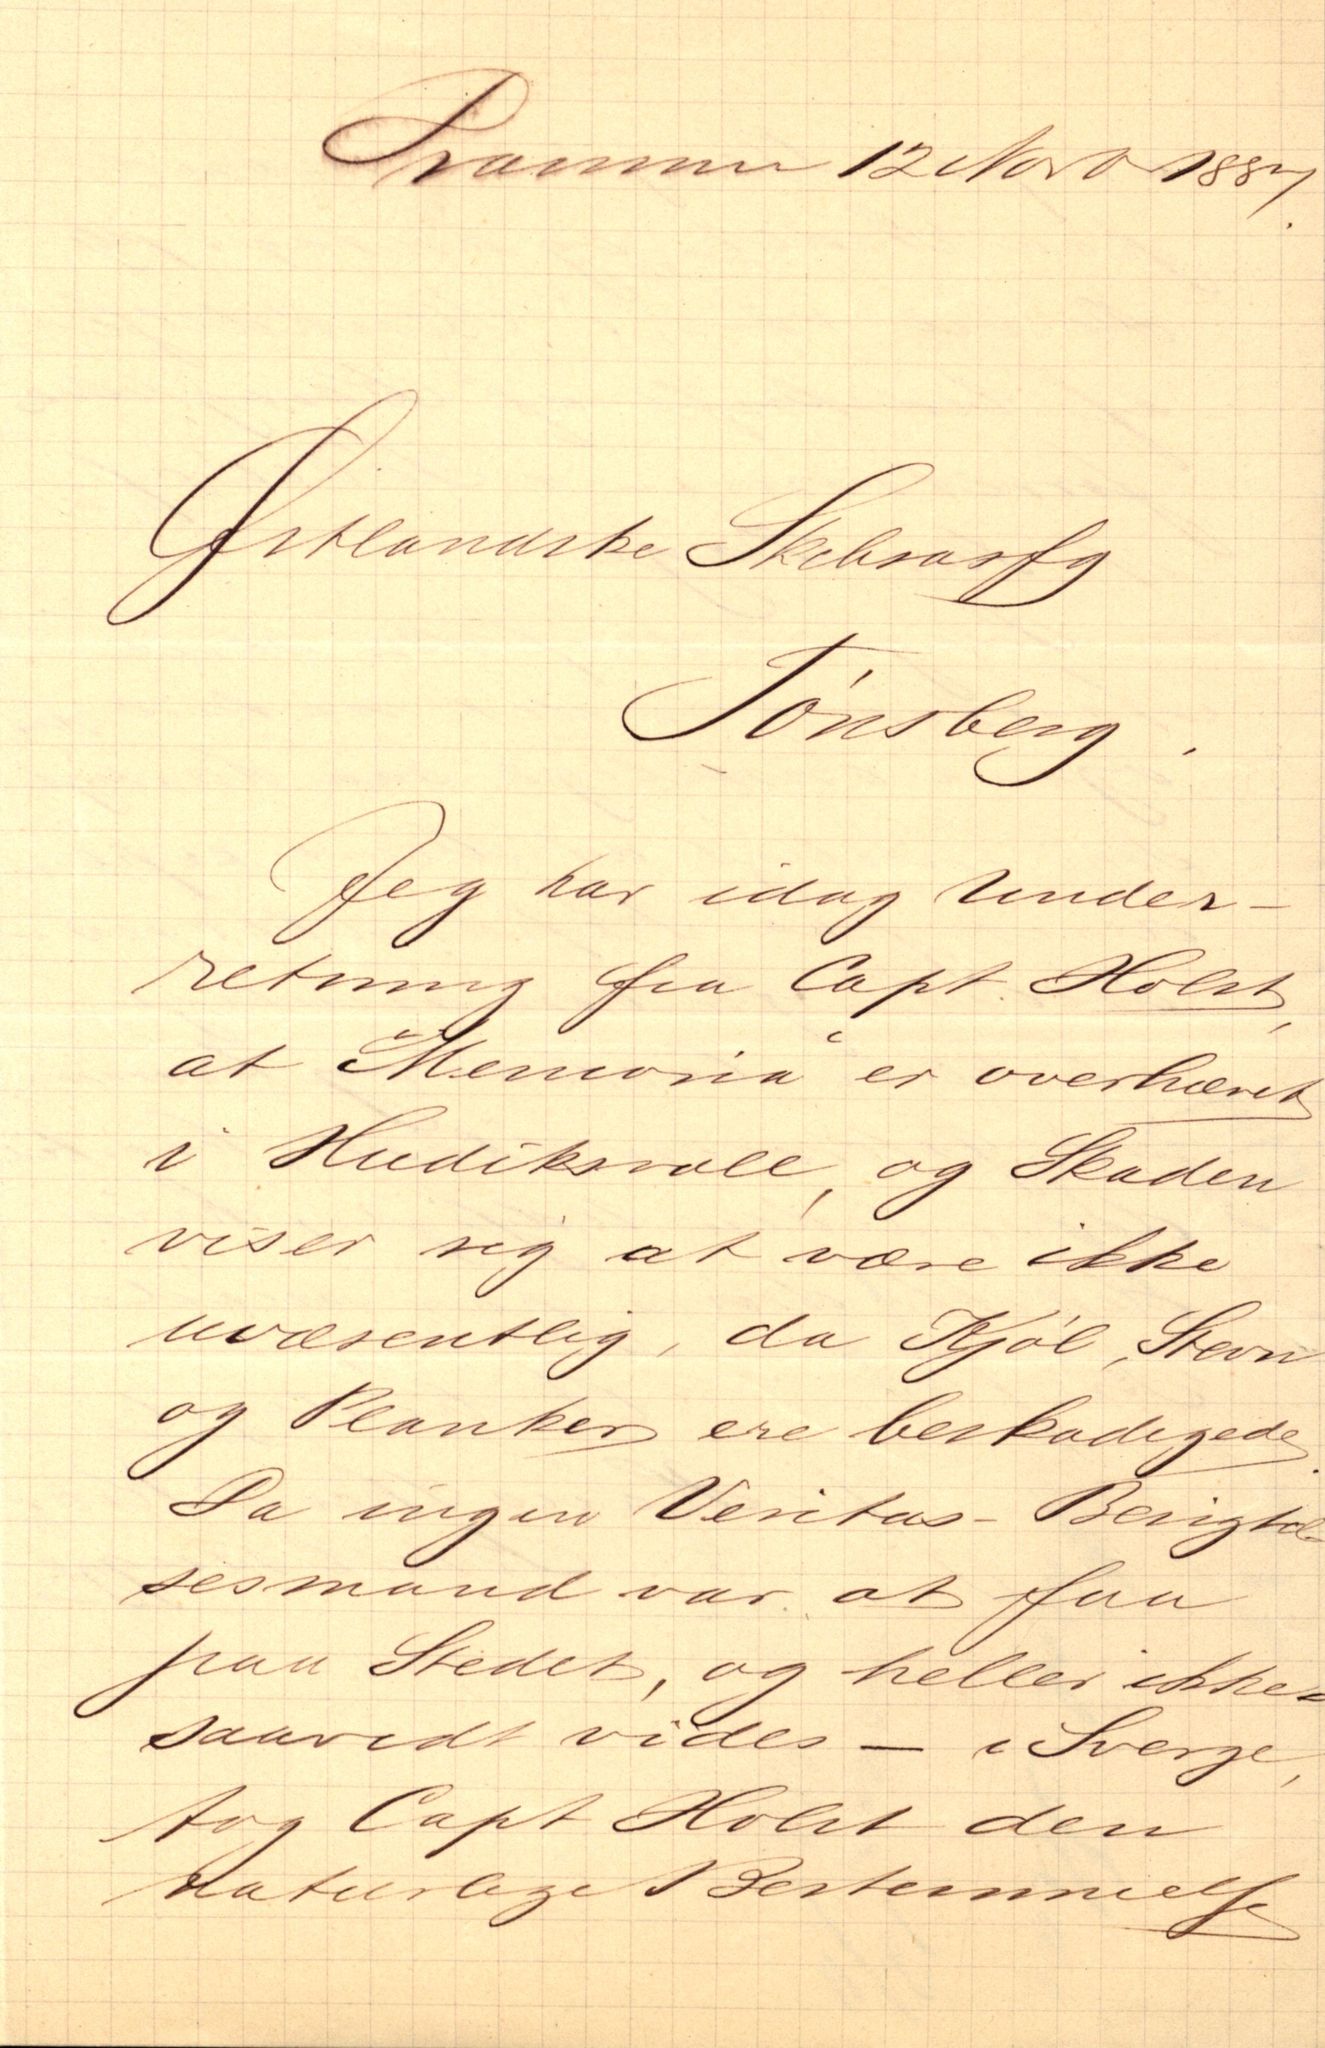 Drammen 12 Novbr 1887.
Østlandske Skibsassfg
Tönsberg.
Jeg har idag Under-
retning fra Capt. Holst,
at "Memoria" er overhalet
i Hudiksvall, og Skaden
viser sig at være ikke
uvæsentlig, da Kjöl, Stevn
og Planker ere beskadigede.
Da ingen Veritas-Besigtel-
sesmand var at faa
paa Stedet, og heller ikke
saavidt vides — i Sverge,
tog Capt Holst den
naturlige Bestemmelse